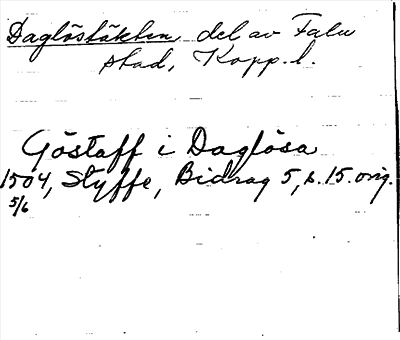 Daglöstäkten del av Falu
stad, Kopp. l.
Göstaff i Daglösa
1504, Styffe, Bidrag 5, s. 15. orig.
5/6